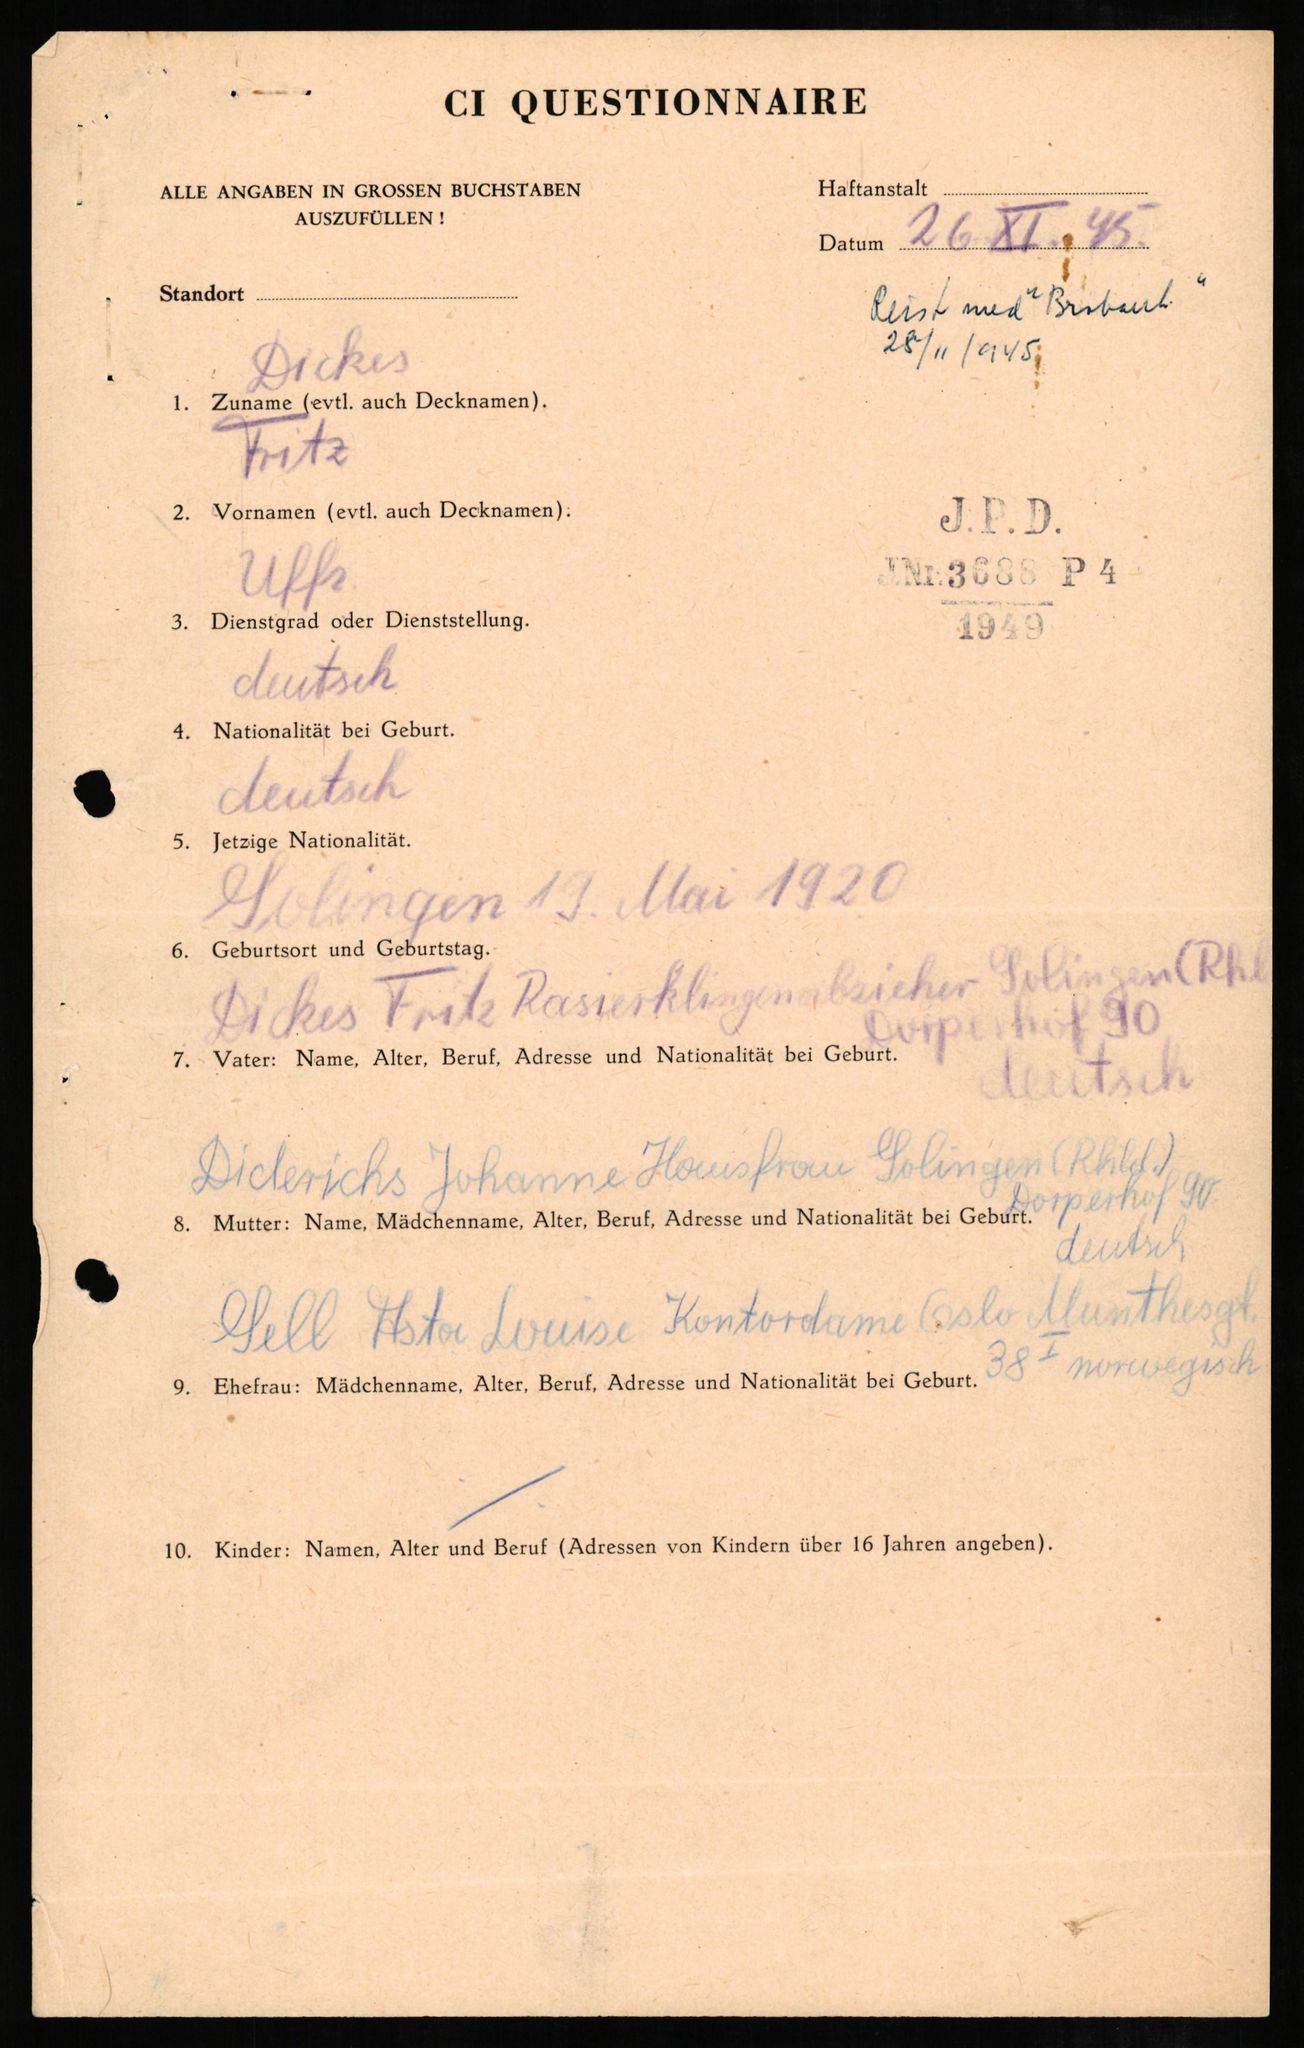 CI QUESTIONNAIRE
ALLE ANGABEN IN GROSSEN BUCHSTABEN
AUSZUFÜLLEN !
Haftanstalt
Datum 26 XI. 45.
Standort
Reist med "
28/11/1945
Dickes
1. Zuname (evtl. auch Decknamen).
Fritz
2. Vornamen (evtl. auch Decknamen).
J. P. D.
J.Nr. 3688 P 4
1949
Uffz
3. Dienstgrad oder Dienststellung.
deutsch
4. Nationalität bei Geburt.
deutsch
5. Jetzige Nationalität.
Solingen 19. Mai 1920
6. Geburtsort und Geburtstag.
Dickes Fritz Rasierklingenabzieher Solingen (Rhl
Dorperhof 90
7. Vater: Name, Alter, Beruf, Adresse und Nationalität bei Geburt.
deutsch
Diderichs Johanne Hausfrau Solingen (Rhld.)
Dorperhof 90
8. Mutter: Name, Mädchenname, Alter, Beruf, Adresse und Nationalität bei Geburt.
deutsch
Sell Asta Louise Kontordame Oslo Munthesgt.
38 I norwegisch
9. Ehefrau: Mädchenname, Alter, Beruf, Adresse und Nationalität bei Geburt.
10. Kinder: Namen, Alter und Beruf (Adressen von Kindern über 16 Jahren angeben).